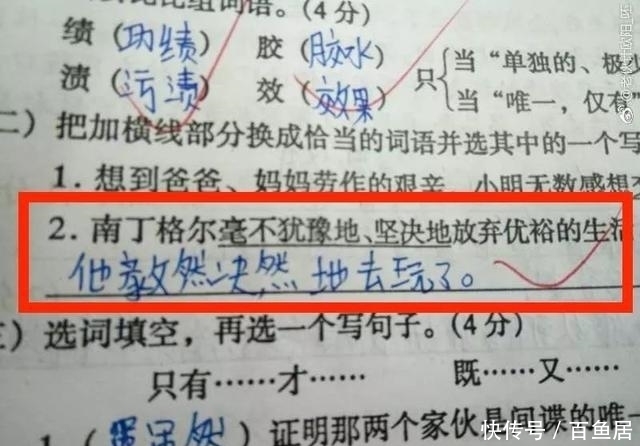 比组词语。(4分)
绩(功绩) 胶(胶水) 只 当“单独的、极少
渍(污渍) 效(效果) 当“唯一,仅有”
二)把加横线部分换成恰当的词语并选其中的一个写
1.想到爸爸、妈妈劳作的艰辛,小明无数感想
2.南丁格尔毫不犹豫地、坚决地放弃优裕的生活
他毅然决然地去玩了。
三)选词填空,再选一个写句子。(4分)
只有……才…… 既……又……
1.(虽然)证明那两个家伙是间谍的唯一
快传号/百鱼居